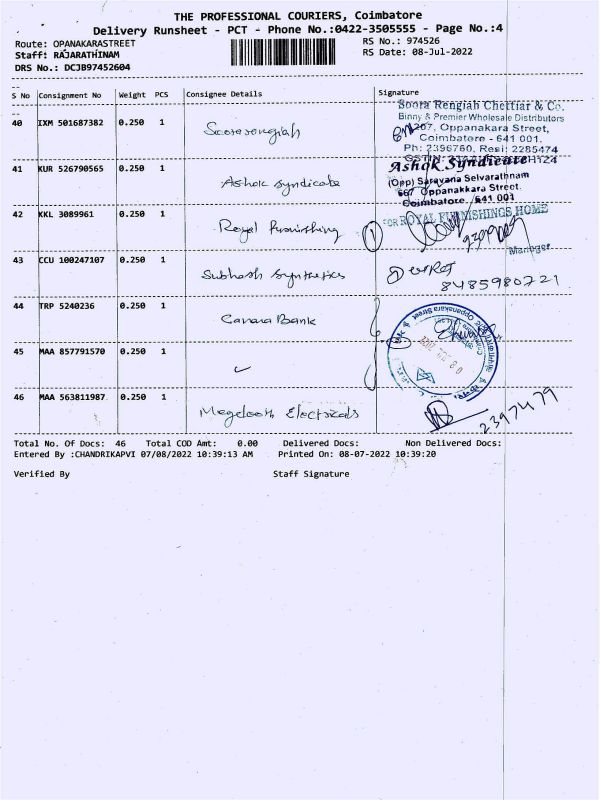 THE PROFESSIONAL COURIERS, Coimbatore
Delivery Runsheet - PCT - Phone No.:0422-3505555 - Page No.:4
Route: OPANAKARASTREET
RS No.: 974526
Staff: RAJARATHINAM
RS Date: 08-Jul-2022
DRS No.: DCJB97452604
S No Consignment No Weight PCS Consignee Details Signature
Soora Rengiah Chettiar & Co.
Binny & Premier Wholesale Distributors
207, Oppanakara Street,
Coimbatore - 641 001.
Ph: 2396760, Resi: 2285474
GSTIN:
40 IXM 501687382 0.250 1
41 KUR 526790565 0.250 1 Ashok Syndicate
Ashok Syndicate
(Opp) Saravana Selvarathnam
667 Oppanakkara Street.
Coimbatore. 641 001
42 KKL 3089961 0.250 1 Royal Furnishing
FOR ROYAL FURNISHINGS HOME
Manager
43 CCU 100247107 0.250 1 Subhash Synthetics
8485980221
44 TRP 5240236 0.250 1 Canara Bank
Oppanakara Street
45 MAA 857791570 0.250 1
46 MAA 563811987 0.250 1 Megdoot Electricals
2397479
Total No. Of Docs: 46 Total COD Amt: 0.00 Delivered Docs: Non Delivered Docs:
Entered By :CHANDRIKAPVI 07/08/2022 10:39:13 AM Printed On: 08-07-2022 10:39:20
Verified By Staff Signature